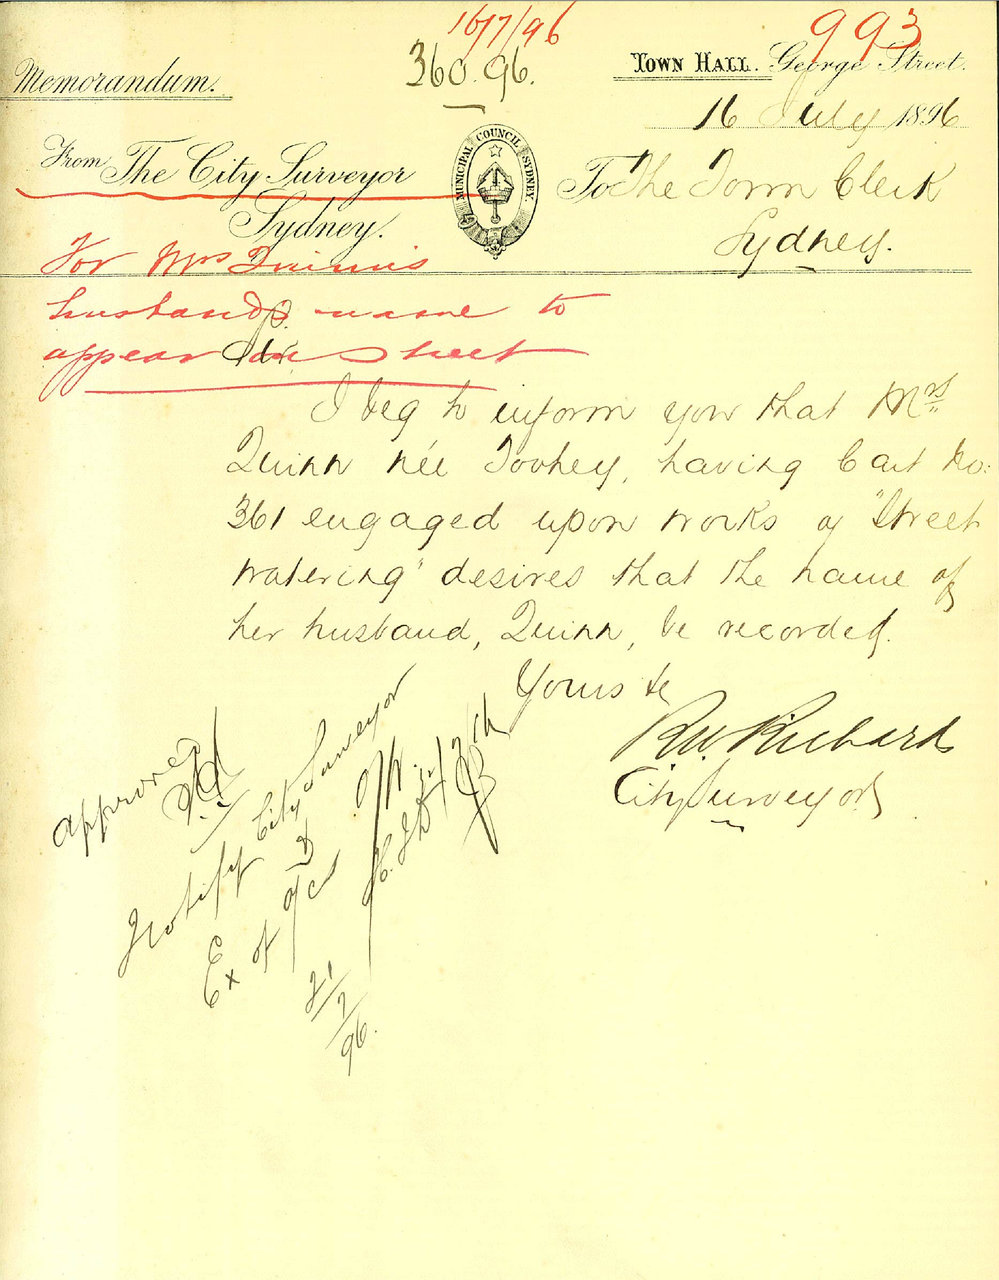 16/7/96
993
360.96.
Memorandum.
TOWN HALL. George Street.
16 July 1896
From The City Surveyor
Sydney.
MUNICIPAL COUNCIL SYDNEY.
To The Town Clerk
Sydney.
For Mrs Quinns
husbands name to
appear on Sheet
Sir
I beg to inform you that Mrs
Quinn née Toohey, having Cart No:
361 engaged upon works of "Street
watering" desires that the name of
her husband, Quinn, be recorded.
Yours &c
R W Richards
City Surveyor
Approved
Notify City Surveyor
&
Ex of
21/7/96.